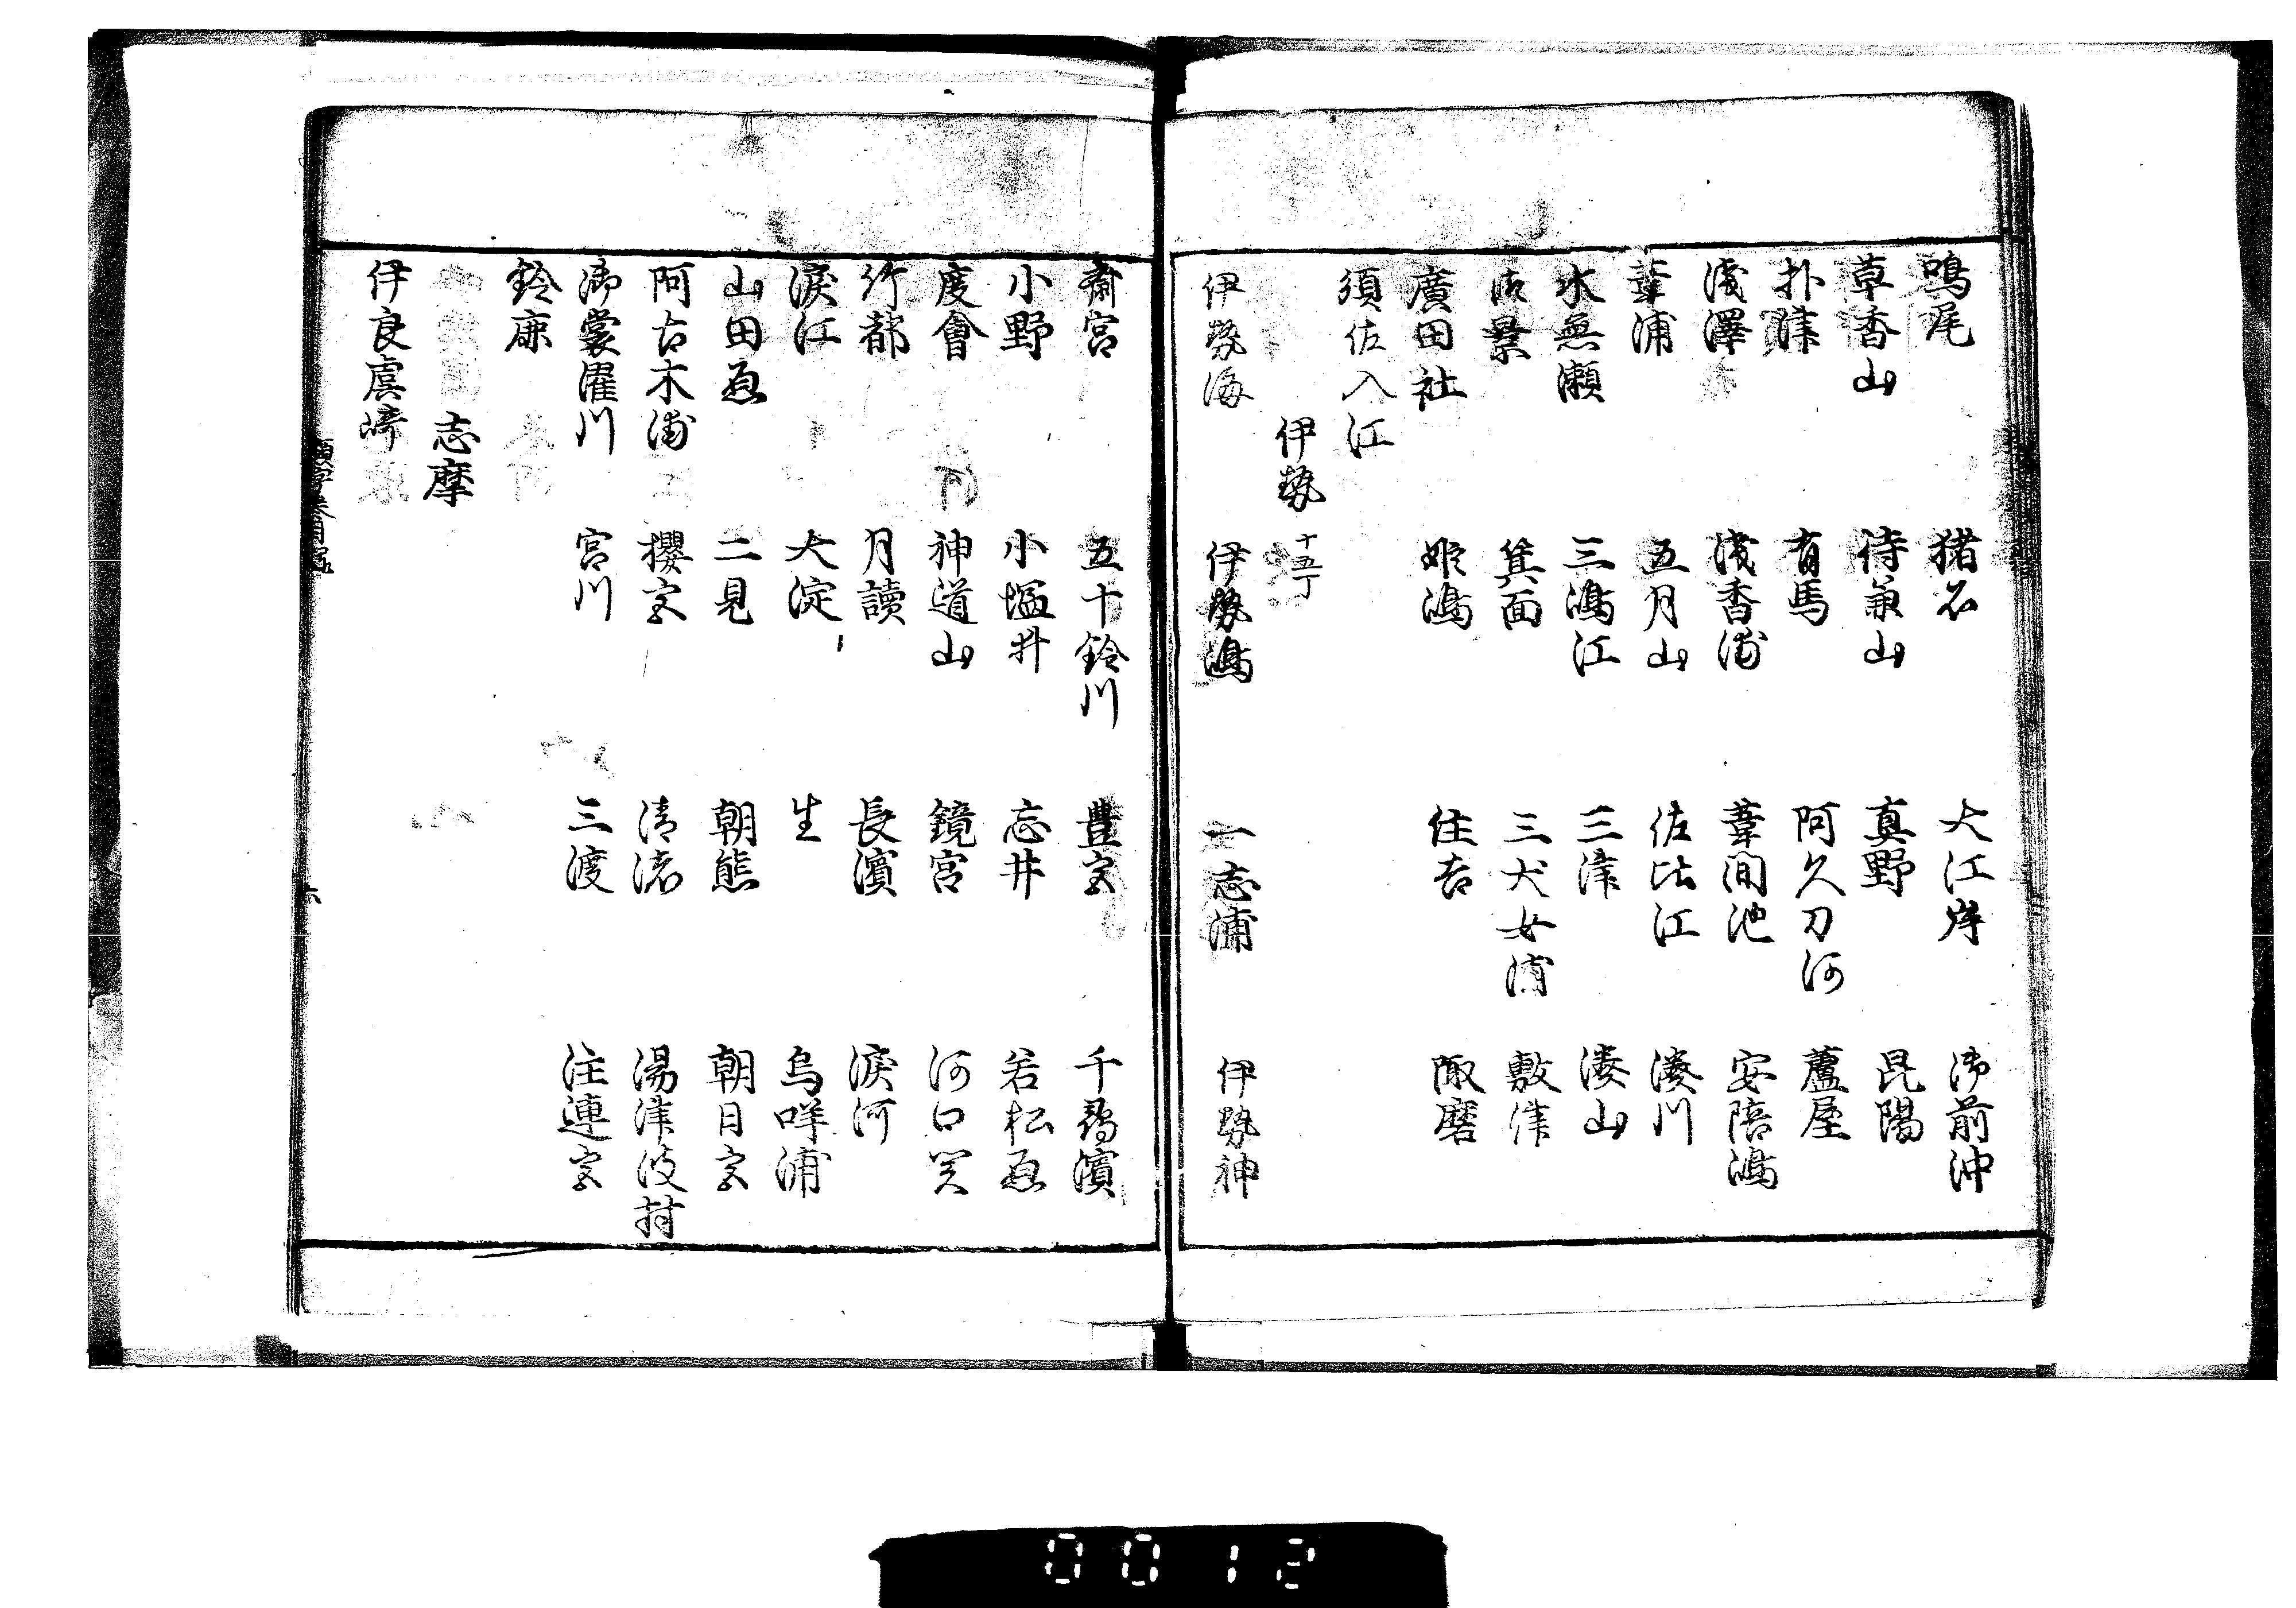 鳴尾 猪名 大江岸 御前沖
草香山 待兼山 真野 昆陽
朴津 有馬 阿久刀河 蘆屋
浅澤 浅香浦 葦間池 安陪嶋
葦浦 五月山 佐比江 湊川
水無瀬 三嶋江 三津 湊山
箕面 三犬女浦 敷津
廣田社 姫嶋 住吉
須佐入江
伊勢 十五丁
伊勢海 伊勢嶋 一志浦 伊勢神
齋宮 五十鈴川 豊宮 千尋濱
小野 小塩井 忘井 若松原
度會 神道山 鏡宮 河口関
竹都 月讀 長濱 涙河
涙江 大淀 生 烏咩浦
山田原 二見 朝熊 朝日宮
阿古木浦 櫻宮 清渚 湯津波村
御裳濯川 宮川 三渡 注連宮
鈴鹿
志摩
伊良虞崎
六
0012